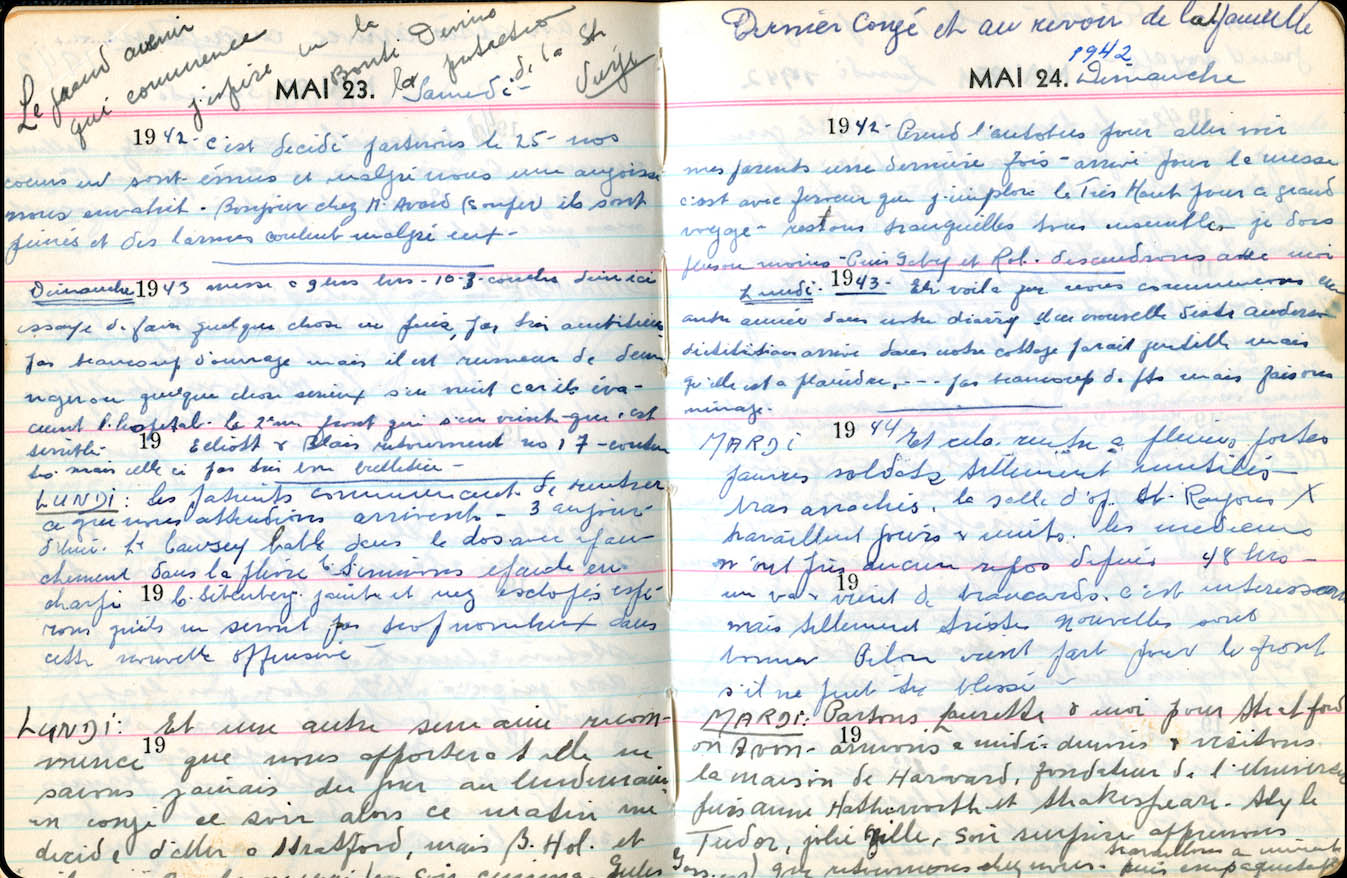 Le grand avenir
qui commence
j'espère en la
Bonté Divine
la protection
de la Ste
Vierge
MAI 23. Samedi-
1942- C'est décidé partirons le 25- nos
coeurs en sont émus et malgré nous une angoisse
nous envahit. Bonjour chez M. ils sont
peinés et des larmes coulent malgré eux-
Dimanche 1943 messe a 9 hrs - 10-3
essaye de faire quelque chose en pas très ambitieuse
pas beaucoup d'ouvrage mais il est rumeur de
quelque chose sérieux s'en vient car ils éva-
cuent l'hopital. le 2ième front qui s'en vient que c'est
terrible. 19 Elliott & Blais retournent no 17-
mais celle ci pas très
LUNDI: Les patients commencent de rentrer
ce que nous attendions arrivent- 3 aujour-
d'hui. Lt Cawsey balle dans le dos avec
dans la plèvre Lt Simmons epaule en
charpi 19 C. jambe et nez espé-
rons qu'ils ne seront pas trop nombreux dans
cette nouvelle offensive-
LUNDI: Et une autre semaine recom-
19
mence que nous apportera t elle ne
savons jamais du jour au lendemain
en congé ce soir alors ce matin me
decide d'aller a Stratford, mais B. Hol. et
soir cinema. Jules
Dernier congé et au revoir de la famille
1942
MAI 24. Dimanche
1942- Prend l'autobus pour aller voir
mes parents une dernière fois- arrivé pour la messe
c'est avec ferveur que j'implore le Très Haut pour ce grand
voyage- restons tranquilles tous ensembles je dors
plus ou moins- Puis Gaby et Rol. descendrons avec moi
Lundi. 1943- Et voila que nous commencons une
autre année dans notre diary Une nouvelle
arrive dans notre cottage parait gentille mais
qu'elle est a plaindre, --- pas beaucoup de pts mais faisons
ménage.
MARDI 1944 Et cela rentre a pleines portes
pauvres soldats tellement mutilés
bras arrachés. la salle d'op. et Rayons X
travaillent jours & nuits. les medecins
n'ont pris aucun repos depuis 48 hrs-
19
un va & vient de brancards. c'est interessant
mais tellement tristes nouvelles sont
bonnes Pilon vient part pour le front
s'il ne peut être blessé
MARDI. Partons Laurette & moi pour Stratford
19
on Avon- arrivons a midi- dinons & visitons
la maison de Harvard, fondateur de l'Université
puis anne Hathaworth et Shakespear. Style
Tudor, jolie ville, soir surprise apprenons
que retournons chez nous. puis empaquetage
travaillons a minuit